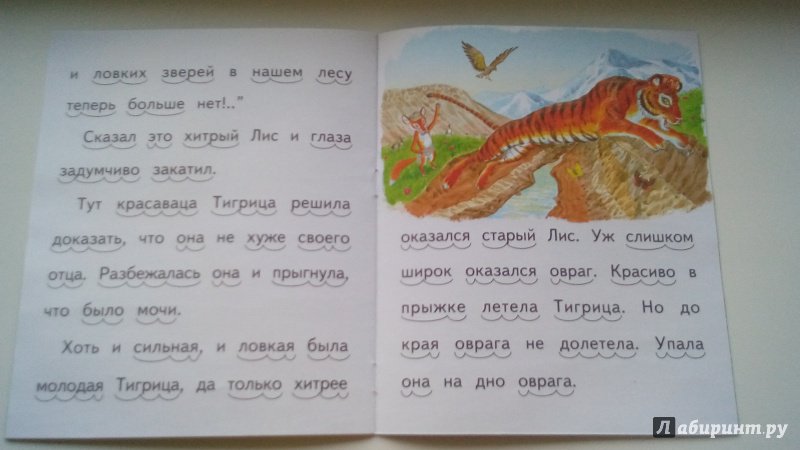 и ловких зверей в нашем лесу
теперь больше нет!.."
Сказал это хитрый Лис и глаза
задумчиво закатил.
Тут красаваца Тигрица решила
доказать, что она не хуже своего
отца. Разбежалась она и прыгнула,
что было мочи.
Хоть и сильная, и ловкая была
молодая Тигрица, да только хитрее
оказался старый Лис. Уж слишком
широк оказался овраг. Красиво в
прыжке летела Тигрица. Но до
края оврага не долетела. Упала
она на дно оврага.
Лабиринт.ру